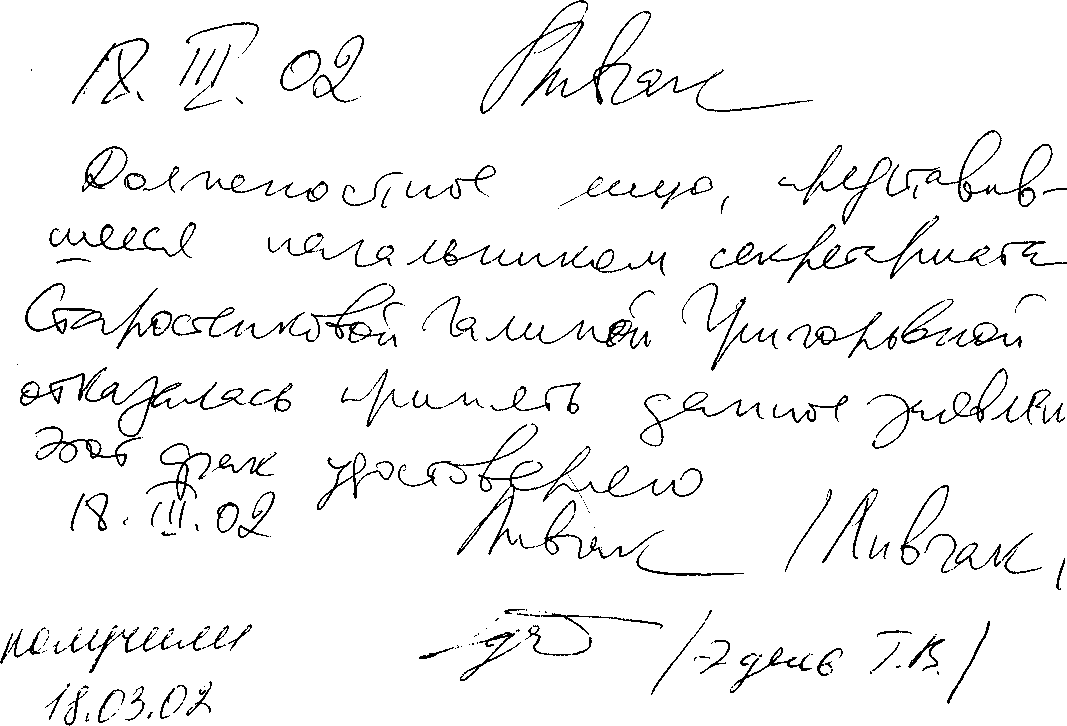 18. III. 02 Пивчак
Должностное лицо, представив-
шееся начальником секретариата
Старостенковой Галиной Григорьевной
отказалась принять данное заявлен
этот факт удостоверяю
18. III. 02 Пивчак /Пивчак,
получили /Эдель Т.В./
18.03.02